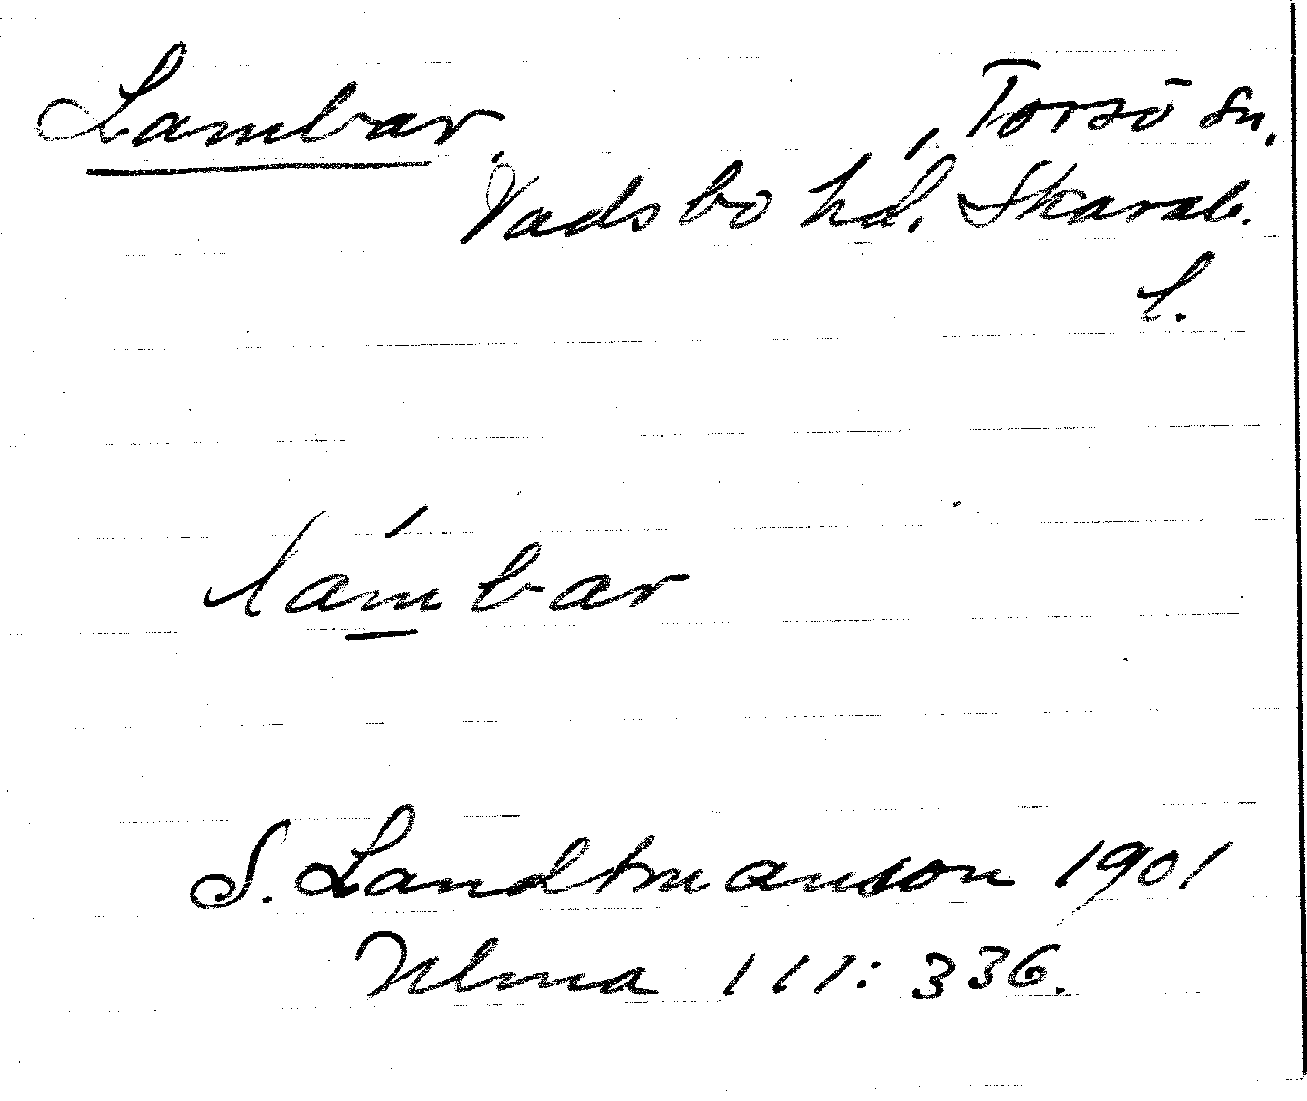 Lambar, Torsö sn.
Vadsbo hd. Skarab.
l.
lámbar
S. Landtmanson 1901
Ulma 111:336.